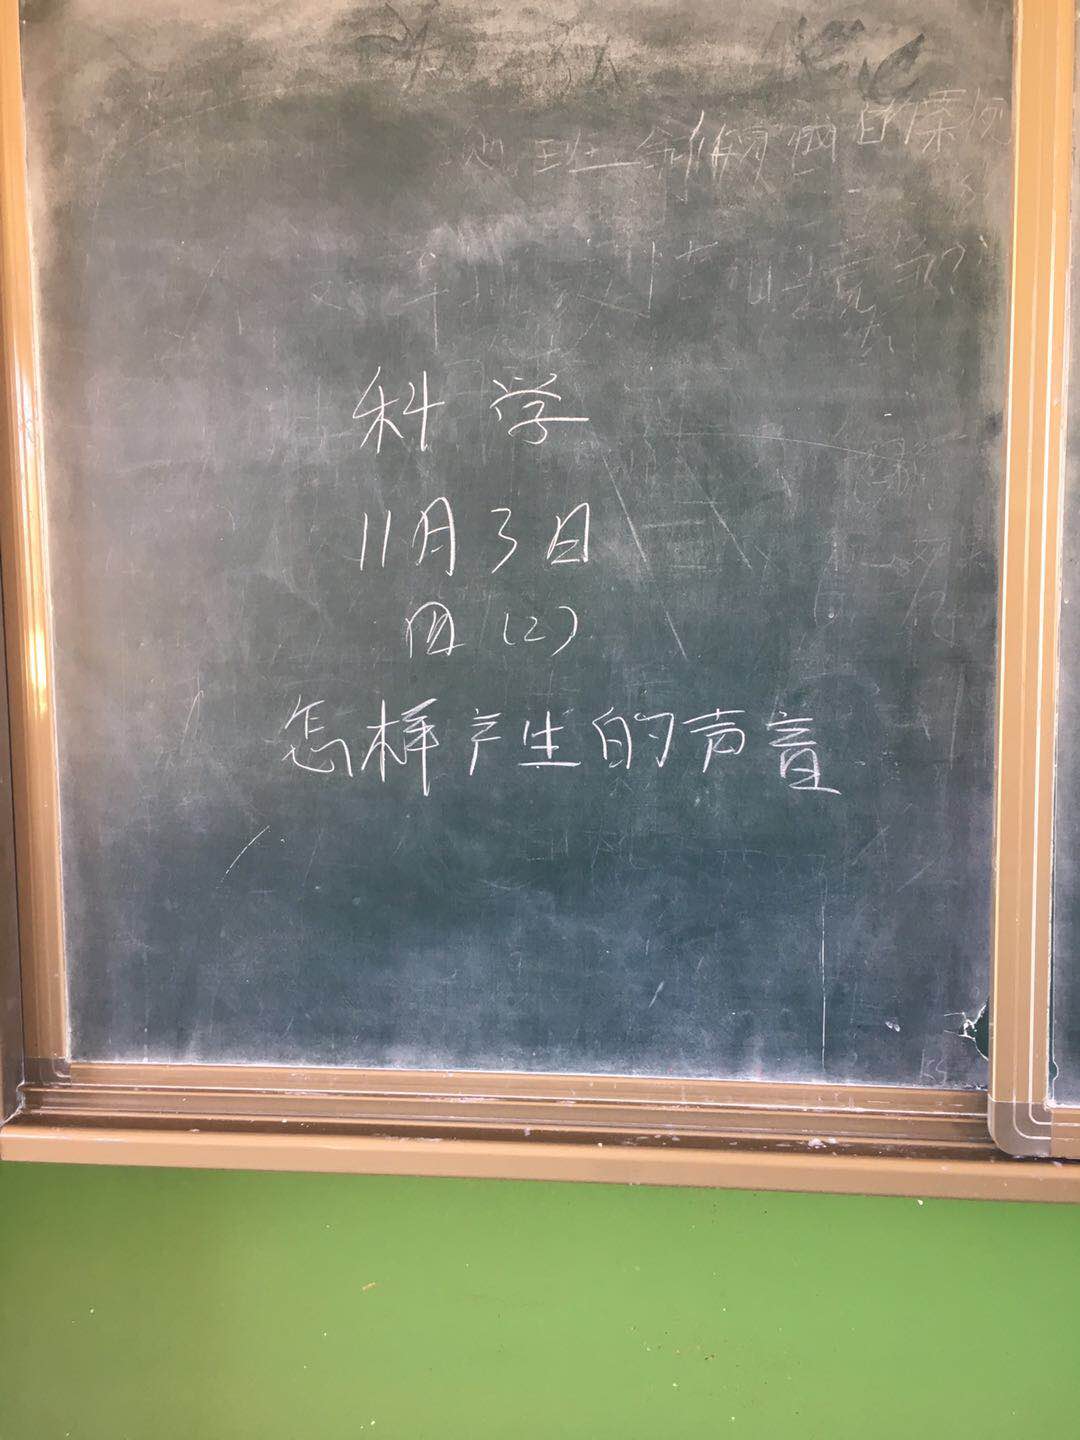 科学
11月3日
四(2)
怎样产生的声音